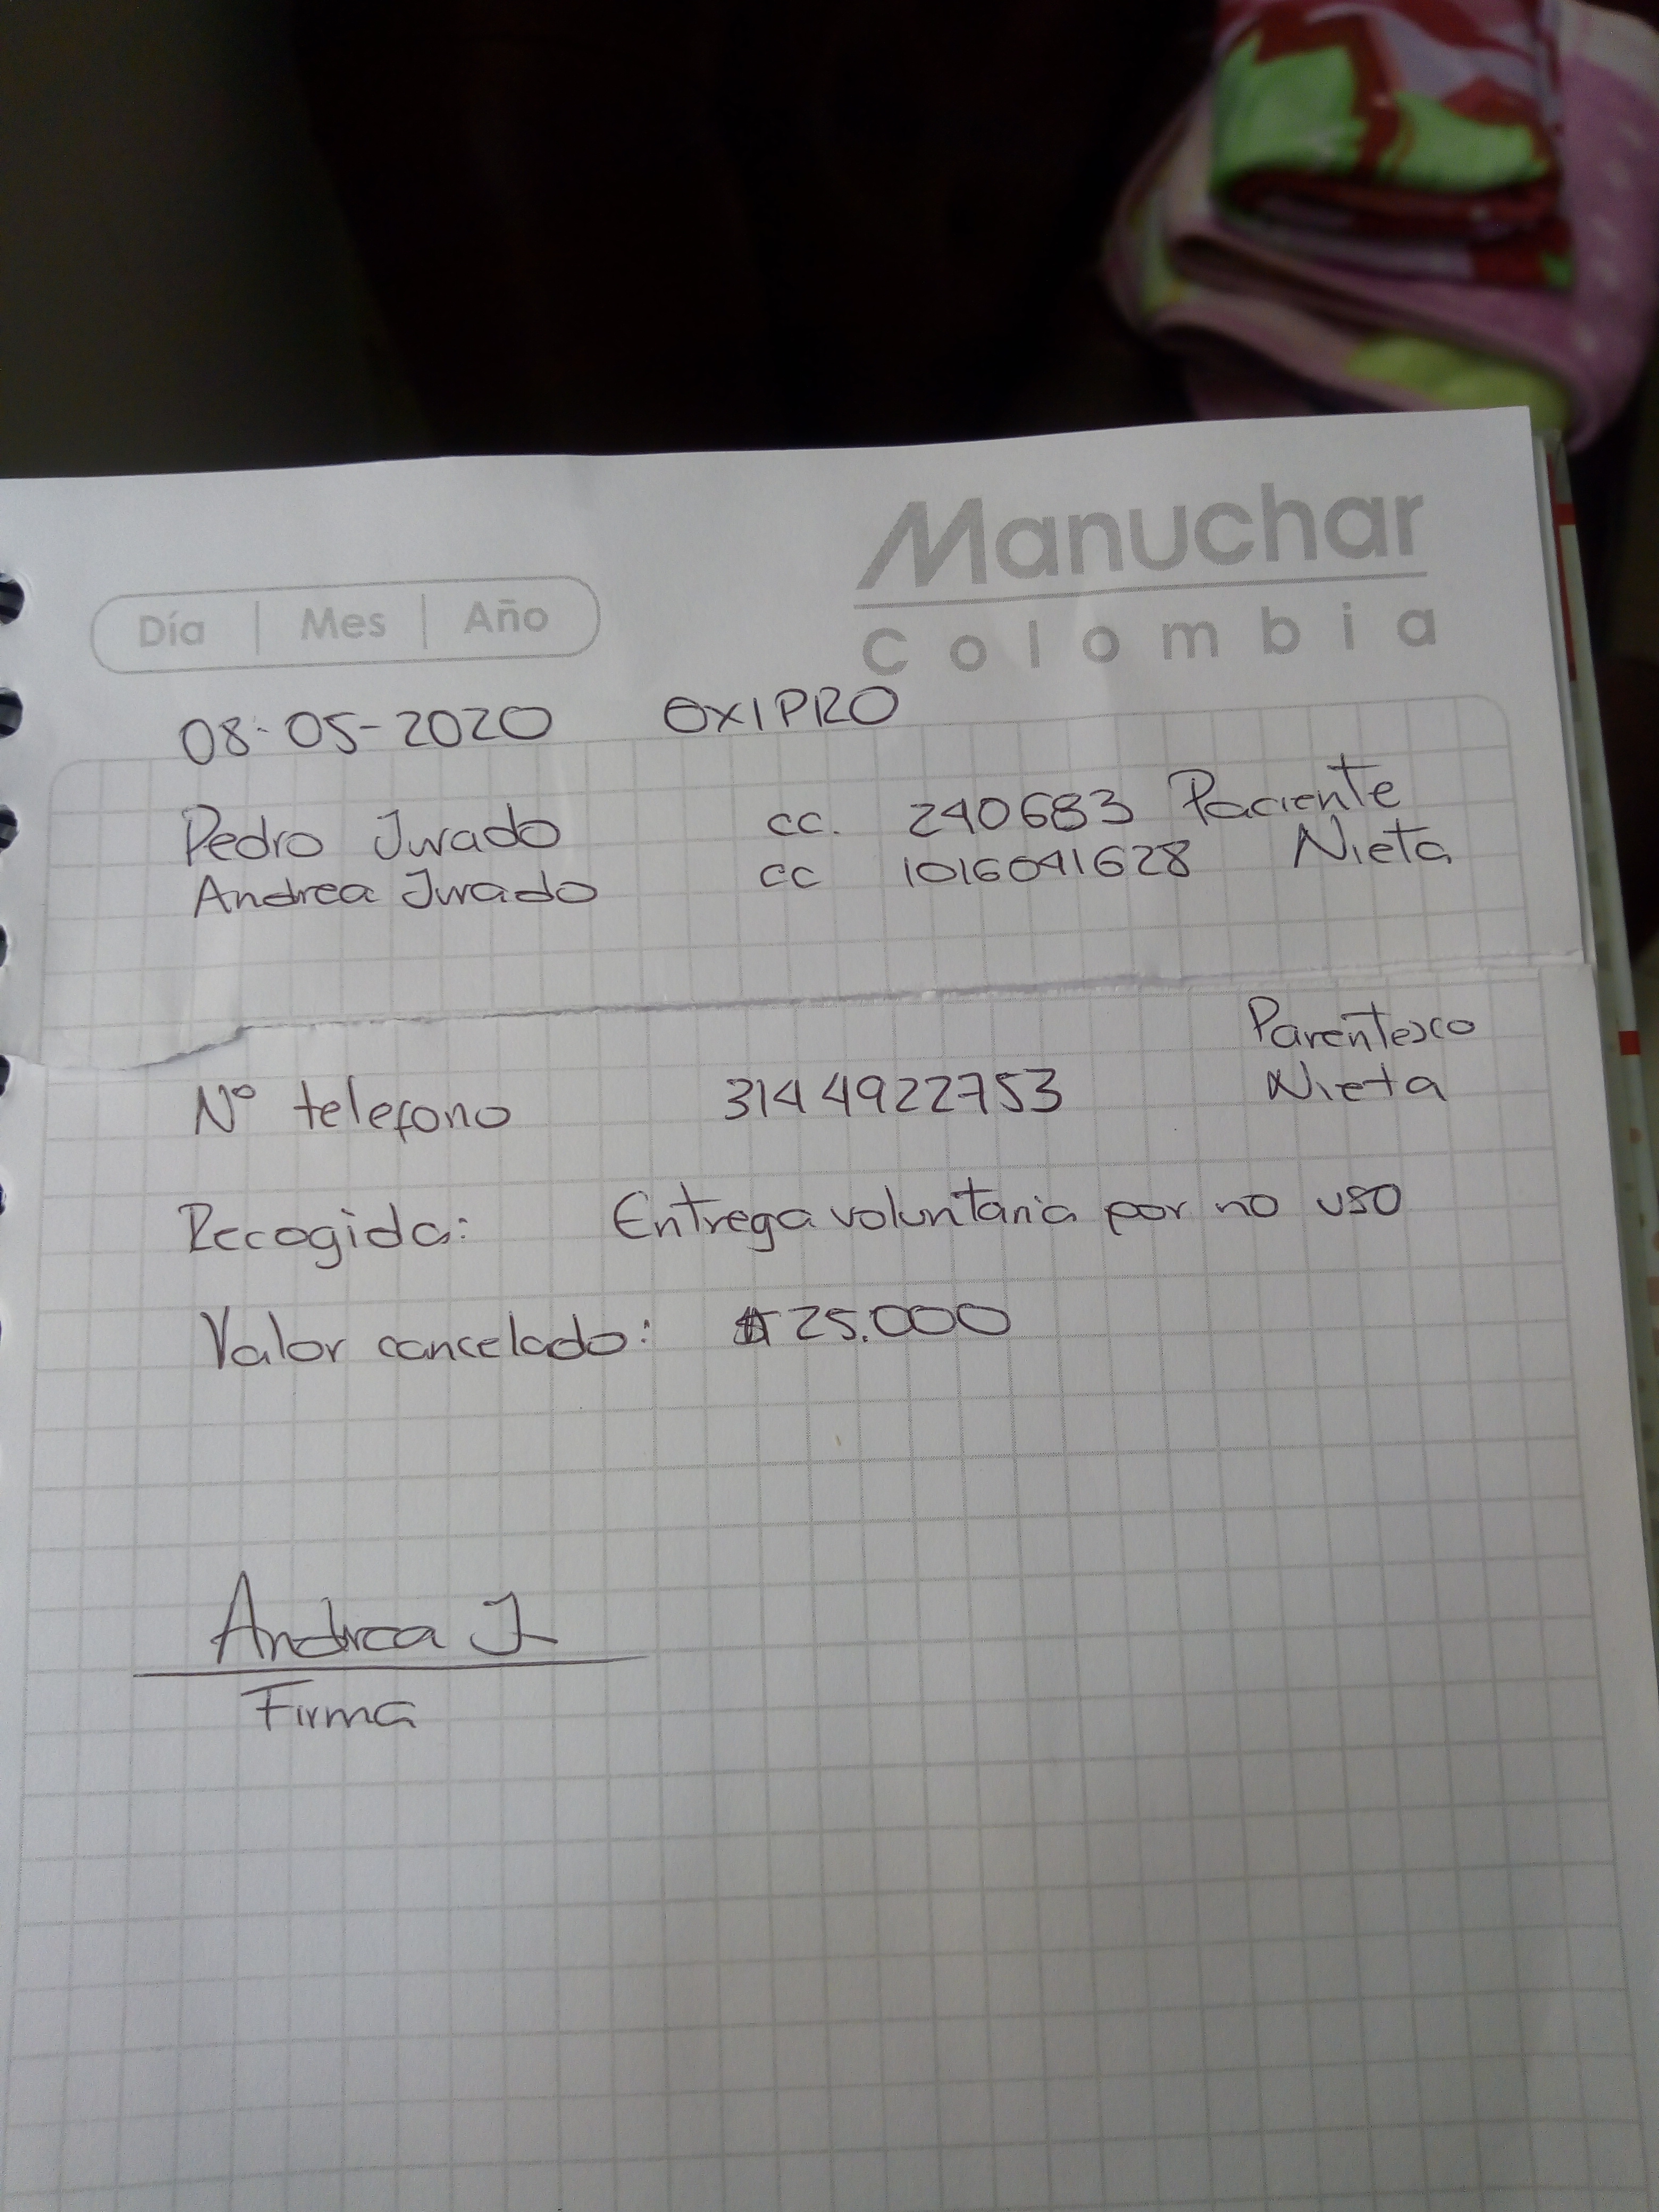 Manuchar
Colombia
Día | Mes | Año
08-05-2020 OXIPRO
Pedro Jurado cc. 240683 Paciente
Andrea Jurado cc 1016041628 Nieta
Parentesco
N° telefono 3144922753 Nieta
Recogida: Entrega voluntaria por no uso
Valor cancelado: $25.000
Andrea J
Firma